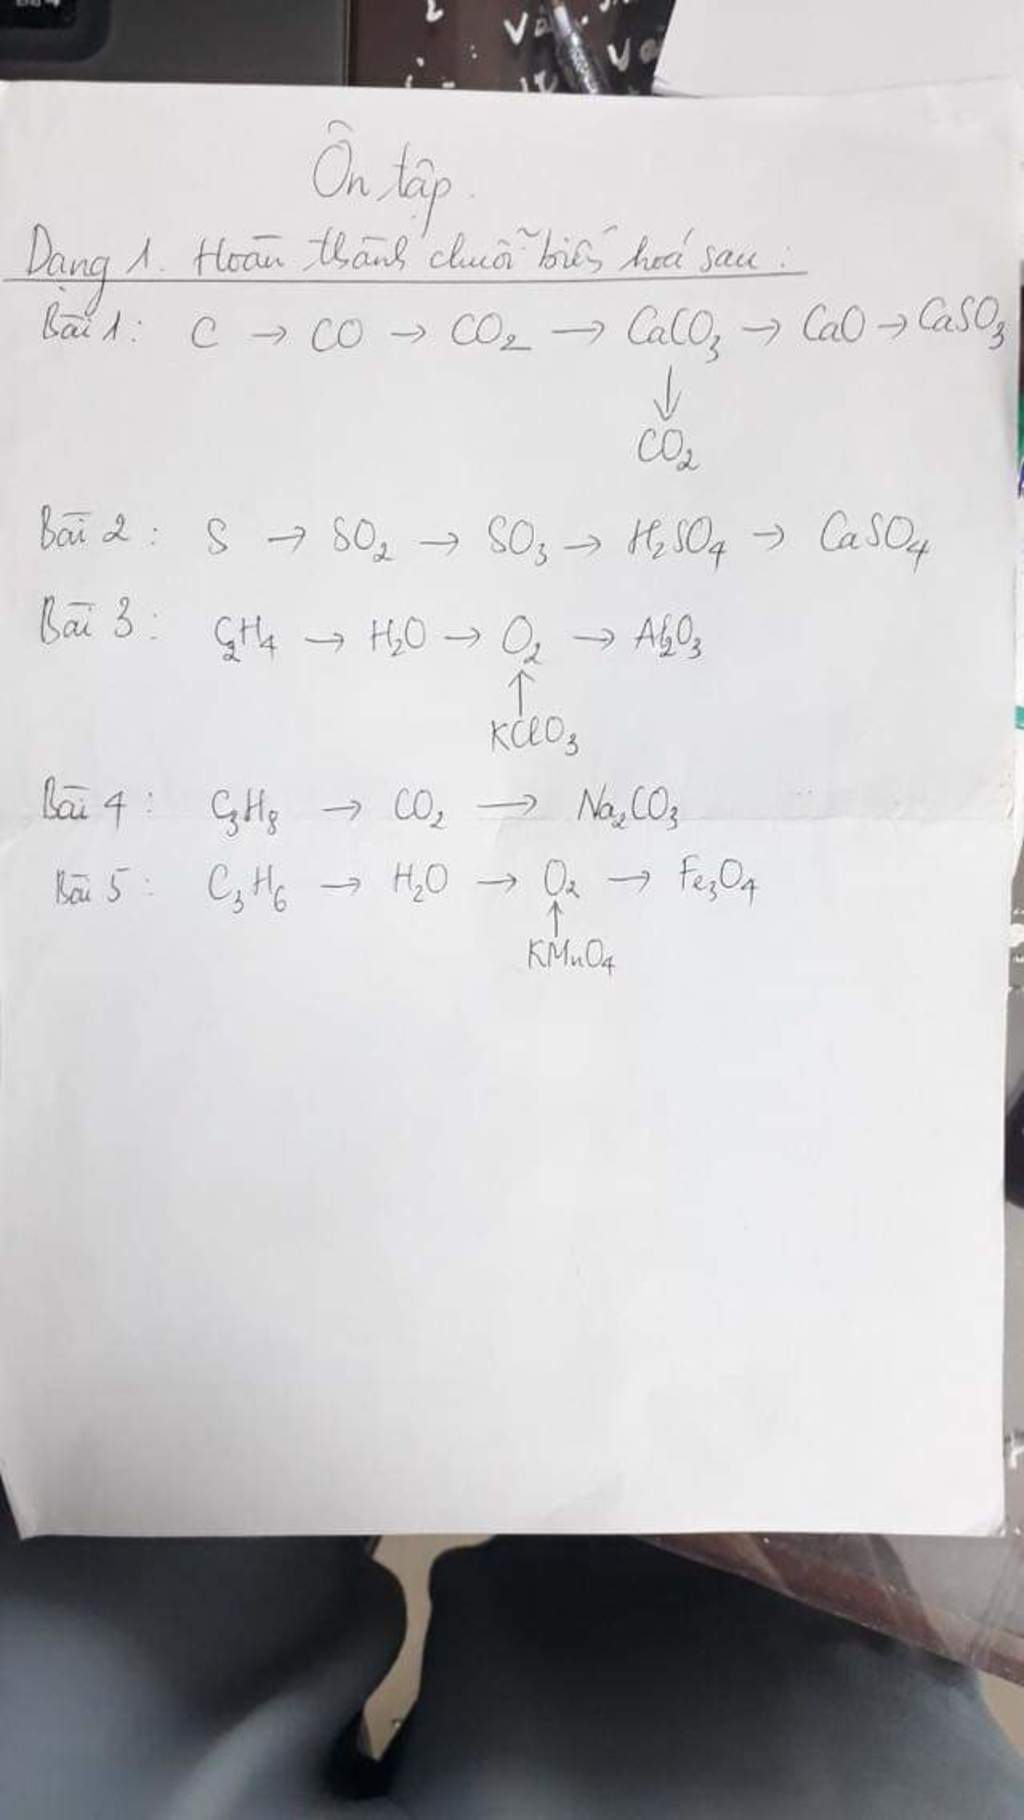 Ôn tập.
Dạng 1. Hoàn thành chuỗi biến hoá sau:
Bài 1: C → CO → CO₂ → CaCO₃ → CaO → CaSO₃
↓
CO₂
Bài 2: S → SO₂ → SO₃ → H₂SO₄ → CaSO₄
Bài 3: C₂H₄ → H₂O → O₂ → Al₂O₃
↑
KClO₃
Bài 4: C₃H₈ → CO₂ → Na₂CO₃
Bài 5: C₃H₆ → H₂O → O₂ → Fe₃O₄
↑
KMnO₄